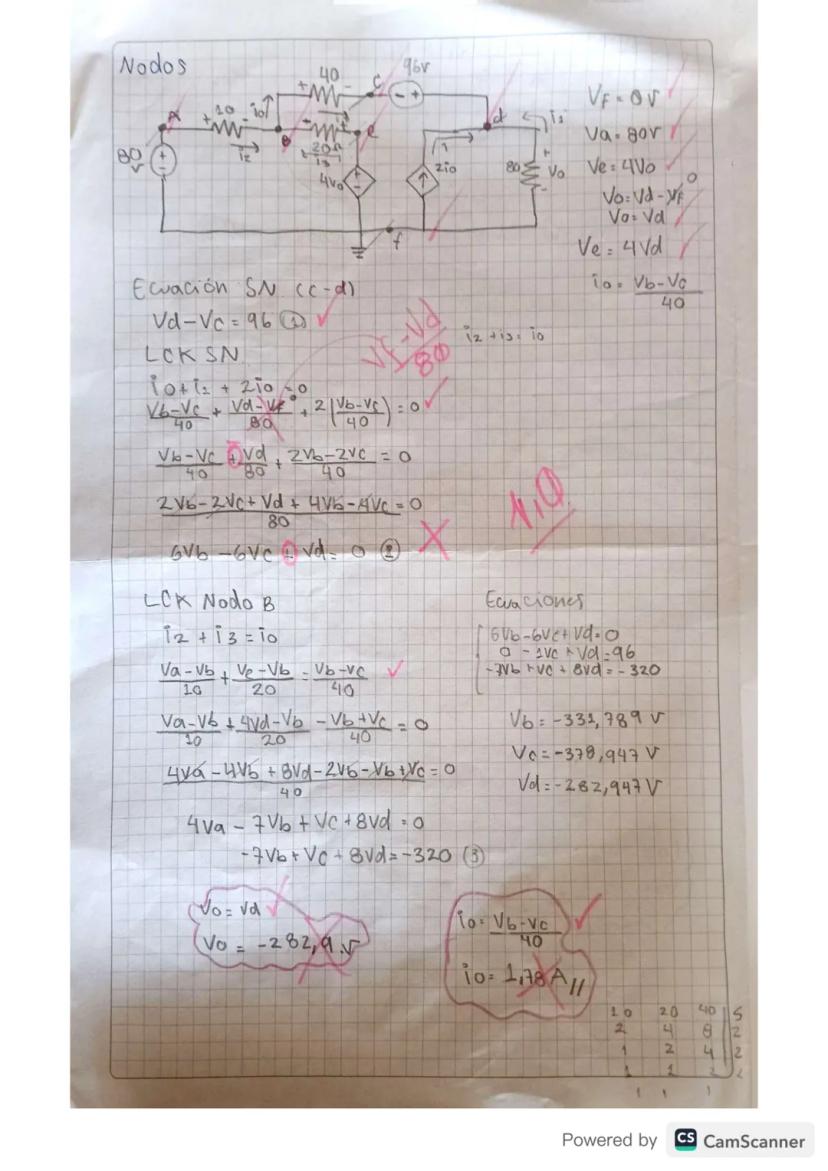 Nodos
40
96V
c
+ -
- +
A
10
+ -
io
B
20Ω
i3
e
d
i1
i2
80
V
4Vo
2io
80
Vo
f
VF = 0V
Va = 80V
Ve = 4Vo
Vo = Vd - VF 0
Vo = Vd
Ve = 4Vd
io = Vb-Vc
40
Ecuación SN (c-d)
Vd-Vc = 96 ①
Vf-Vd
80
i2 + i3 = io
LCK SN
io + i1 + 2io = 0
Vb-Vc + Vd-VF + 2 (Vb-Vc) = 0
40 80 40
Vb-Vc + Vd + 2Vb-2Vc = 0
40 80 40
2Vb-2Vc+Vd+4Vb-4Vc = 0
80
6Vb - 6Vc + Vd = 0 ②
LCK Nodo B
i2 + i3 = io
Va-Vb + Ve-Vb = Vb-Vc
10 20 40
Va-Vb + 4Vd-Vb - Vb+Vc = 0
10 20 40
4Va-4Vb+8Vd-2Vb-Vb+Vc = 0
40
4Va - 7Vb + Vc + 8Vd = 0
-7Vb + Vc + 8Vd = -320 ③
Ecuaciones
6Vb-6Vc+Vd=0
0 - 1Vc + Vd = 96
-7Vb + Vc + 8Vd = -320
Vb = -331,789 V
Vc = -378,947 V
Vd = -282,947 V
Vo = Vd
Vo = -282,9 V
io = Vb-Vc
40
io = 1,78 A //
10 20 40 5
2 4 8 2
1 2 4 2
1 1 2 2
1 1 1
Powered by CS CamScanner